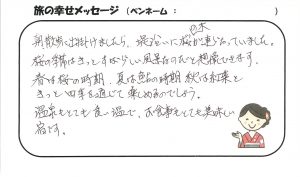 旅の幸せメッセージ (ペンネーム : )
朝散歩に出掛けましたら、堤沿いに桜の木が連らなっていました。
桜の季節はきっとすばらしい風景なのだと想像できます。
春は桜の時期、夏は の時期 秋は紅葉と
きっと四季を通じて楽しめるでしょう。
温泉もとても良い温で、お食事もとても美味しい
宿です。